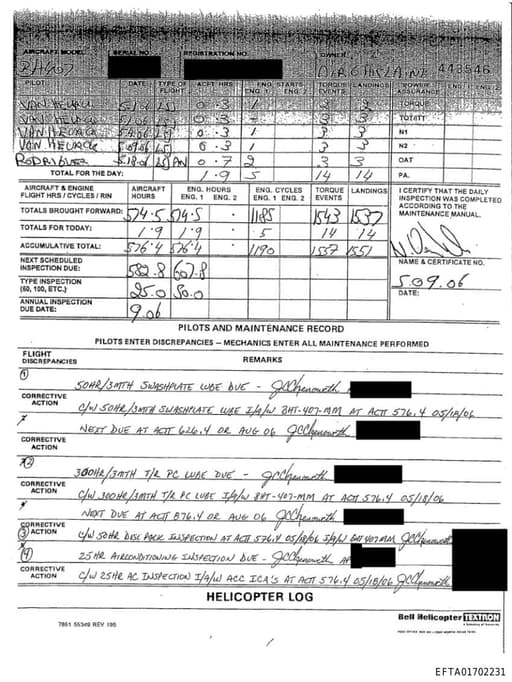 AIRCRAFT MODEL SERIAL NO. REGISTRATION NO. OWNER
BH407 AIR GHISLAINE 448546
PILOT DATE TYPE OF FLIGHT ACFT HRS ENG. STARTS ENG. 1 ENG. 2 TORQUE EVENTS LANDINGS POWER ASSURANCE ENG. 1 ENG. 2
0.3 1 3 3 TORQUE
TOT/ITT
0.3 1 3 3 N1
0.3 1 3 3 N2
RODRIGUEZ 0.7 2 3 3 OAT
TOTAL FOR THE DAY: 1.9 5 14 14 PA.
AIRCRAFT & ENGINE FLIGHT HRS / CYCLES / RIN AIRCRAFT HOURS ENG. HOURS ENG. 1 ENG. 2 ENG. CYCLES ENG. 1 ENG. 2 TORQUE EVENTS LANDINGS
I CERTIFY THAT THE DAILY INSPECTION WAS COMPLETED ACCORDING TO THE MAINTENANCE MANUAL.
TOTALS BROUGHT FORWARD: 574.5 574.5 1185 1543 1537
TOTALS FOR TODAY: 1.9 1.9 5 14 14
ACCUMULATIVE TOTAL: 576.4 576.4 1190 1557 1551
NEXT SCHEDULED INSPECTION DUE: 582.8 607.8
NAME & CERTIFICATE NO.
TYPE INSPECTION (50, 100, ETC.) 25.0 50.0
5.09.06
DATE:
ANNUAL INSPECTION DUE DATE: 9.06
PILOTS AND MAINTENANCE RECORD
PILOTS ENTER DISCREPANCIES – MECHANICS ENTER ALL MAINTENANCE PERFORMED
FLIGHT DISCREPANCIES REMARKS
1
50HR/3MTH SWASHPLATE LUBE DUE -
CORRECTIVE ACTION C/W 50HR/3MTH SWASHPLATE LUBE I/A/W BHT-407-MM AT ACTT 576.4 05/18/06
NEXT DUE AT ACTT 626.4 OR AUG 06
CORRECTIVE ACTION
2
300HR/3MTH T/R PC LUBE DUE -
CORRECTIVE ACTION C/W 300HR/3MTH T/R PC LUBE I/A/W BHT-407-MM AT ACTT 576.4 05/18/06
NEXT DUE AT ACTT 876.4 OR AUG 06
CORRECTIVE ACTION
3 C/W 50HR DISC PACK INSPECTION AT ACTT 576.4 05/18/06 I/A/W BHT 407MM
4 25HR AIRCONDITIONING INSPECTION DUE -
CORRECTIVE ACTION C/W 25HR AC INSPECTION I/A/W ACC ICA'S AT ACTT 576.4 05/18/06
HELICOPTER LOG
7861 55349 REV 195
Bell Helicopter TEXTRON
EFTA01702231